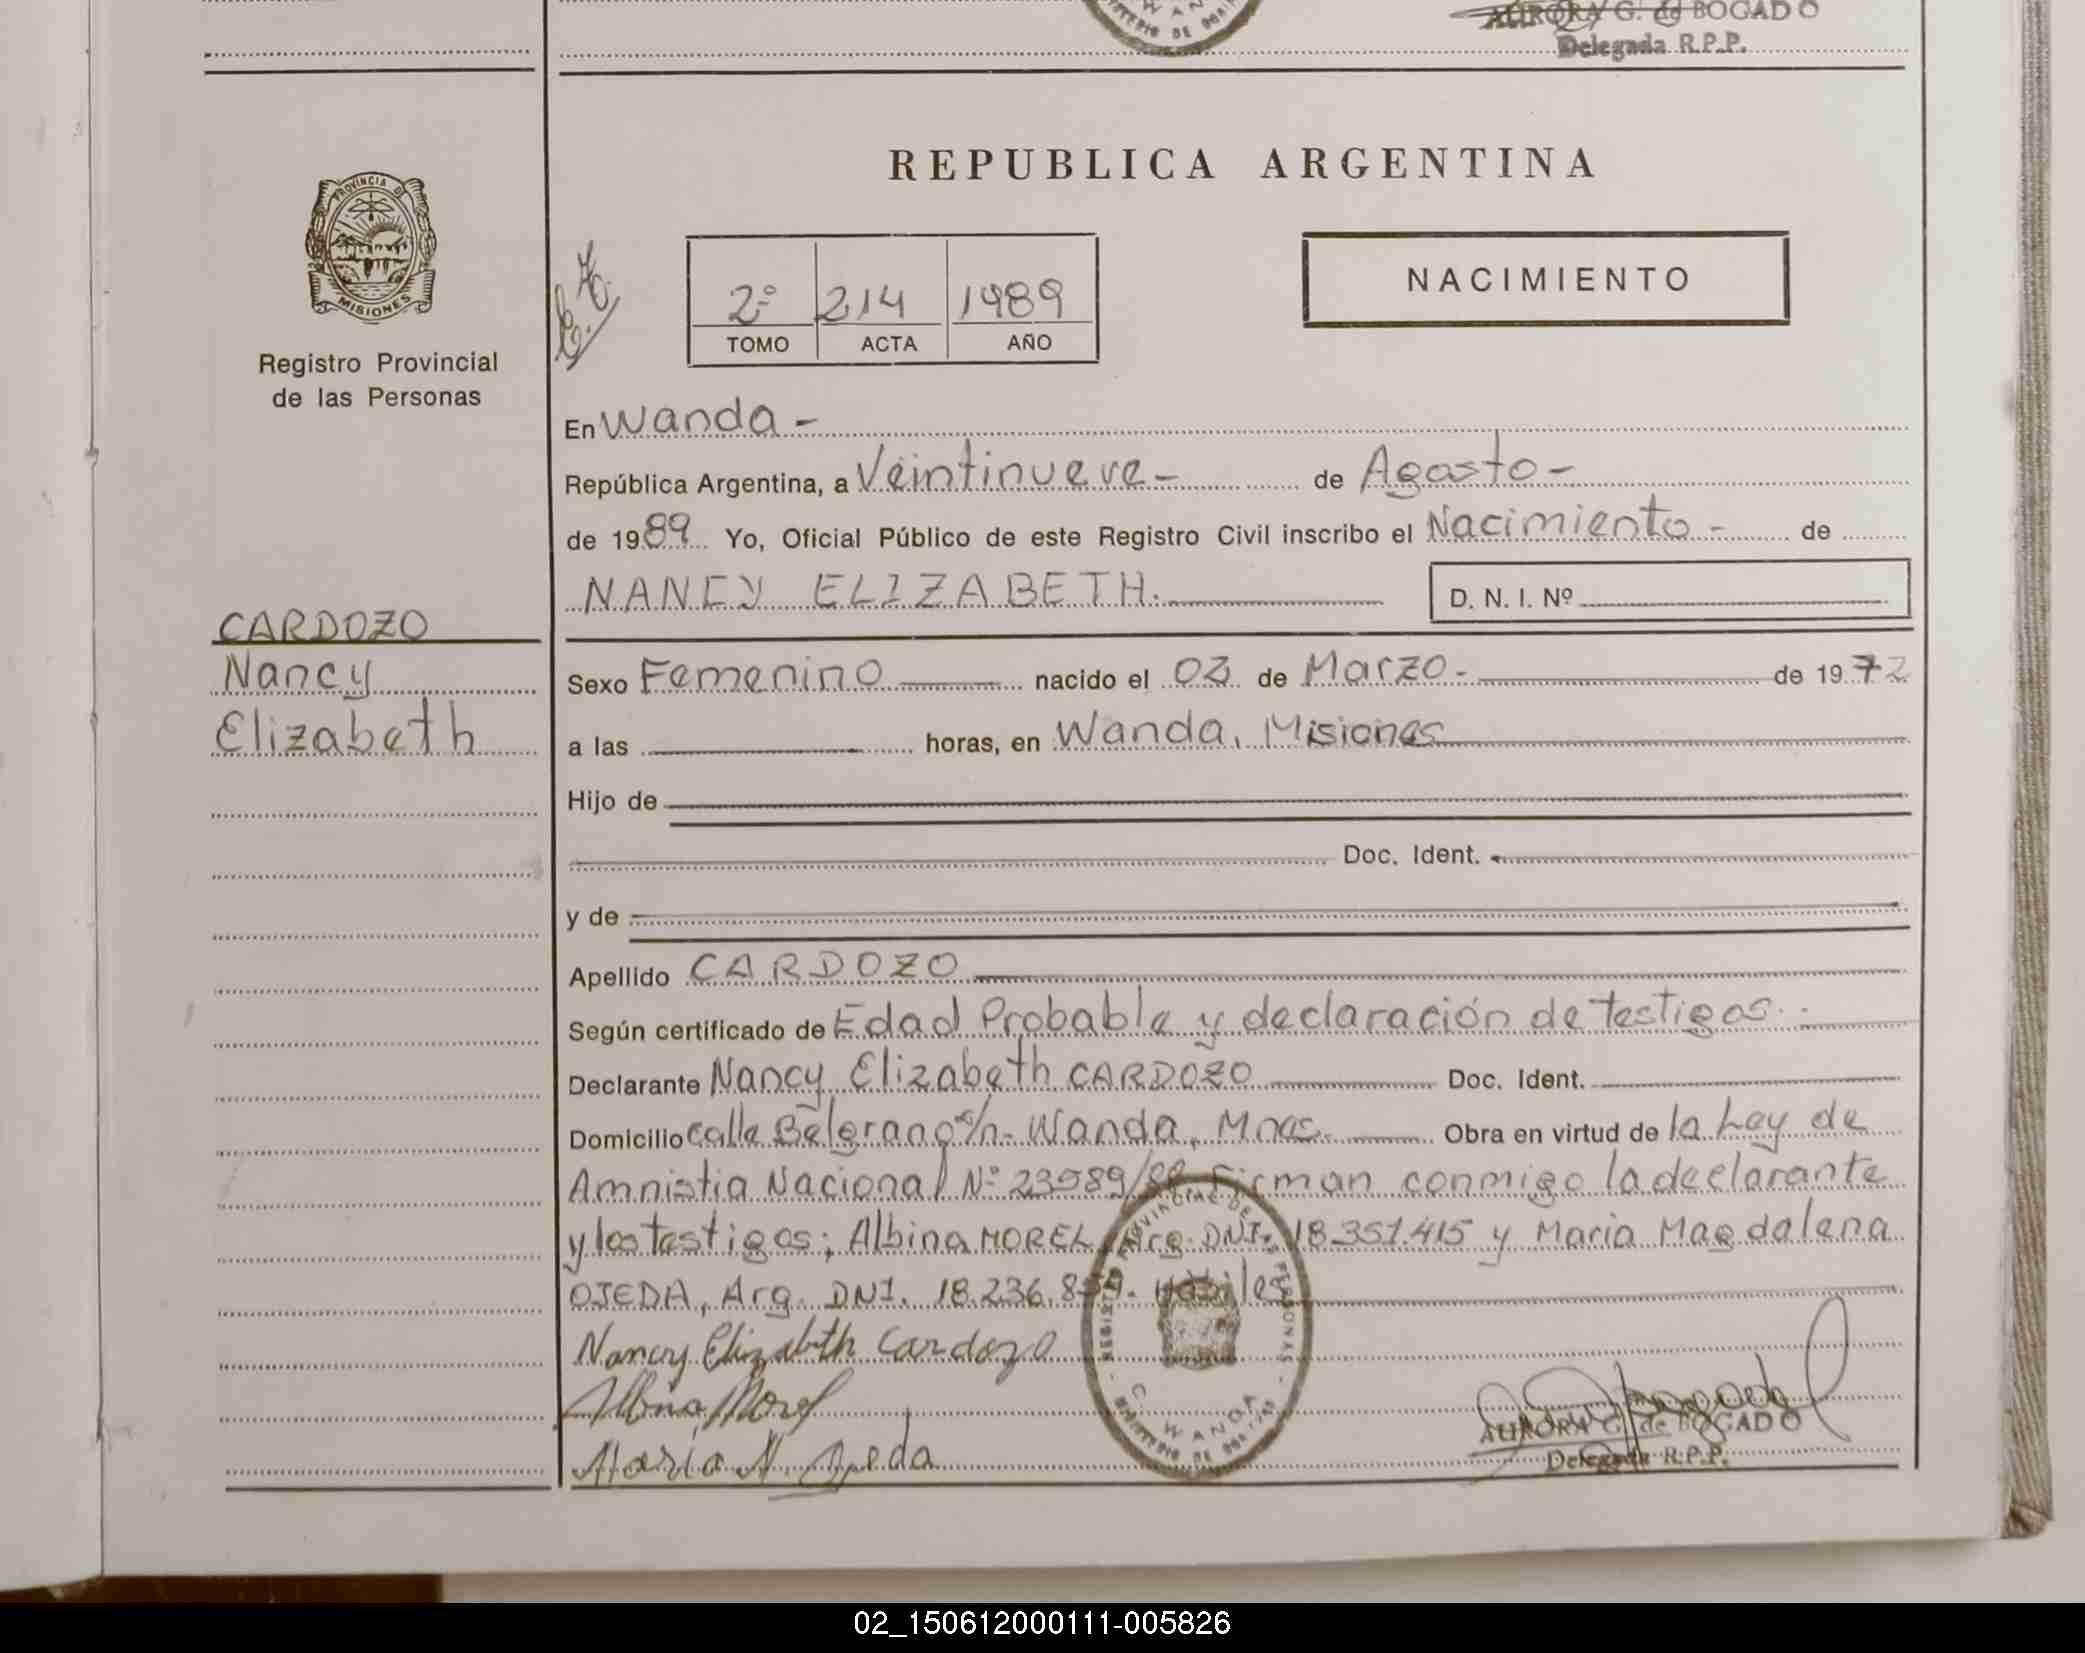 AURORA G. de BOGADO
Delegada R.P.P.
REPUBLICA ARGENTINA
PROVINCIA DE
MISIONES
Registro Provincial
de las Personas
2º 214 1989
TOMO ACTA AÑO
NACIMIENTO
En Wanda -
República Argentina, a Veintinueve - de Agosto -
de 1989 Yo, Oficial Público de este Registro Civil inscribo el Nacimiento - de
NANCY ELIZABETH. D. N. I. Nº
CARDOZO
Nancy
Elizabeth
Sexo Femenino nacido el 03 de Marzo - de 1972
a las horas, en Wanda, Misiones
Hijo de
Doc. Ident.
y de
Apellido CARDOZO
Según certificado de Edad Probable y declaración de testigos.
Declarante Nancy Elizabeth CARDOZO Doc. Ident.
Domicilio calle Belgrano s/n - Wanda, Mnes. Obra en virtud de la Ley de
Amnistia Nacional Nº Firman conmigo la declarante
y los testigos; Albina MOREL, Arg. DNI. 18.351.415 y Maria Magdalena
OJEDA, Arg. DNI. 18.236. habiles
Nancy Elizabeth Cardozo
Albina Morel
María M. Ojeda
WANDA
AURORA G. de BOGADO
Delegada R.P.P.
02_150612000111-005826